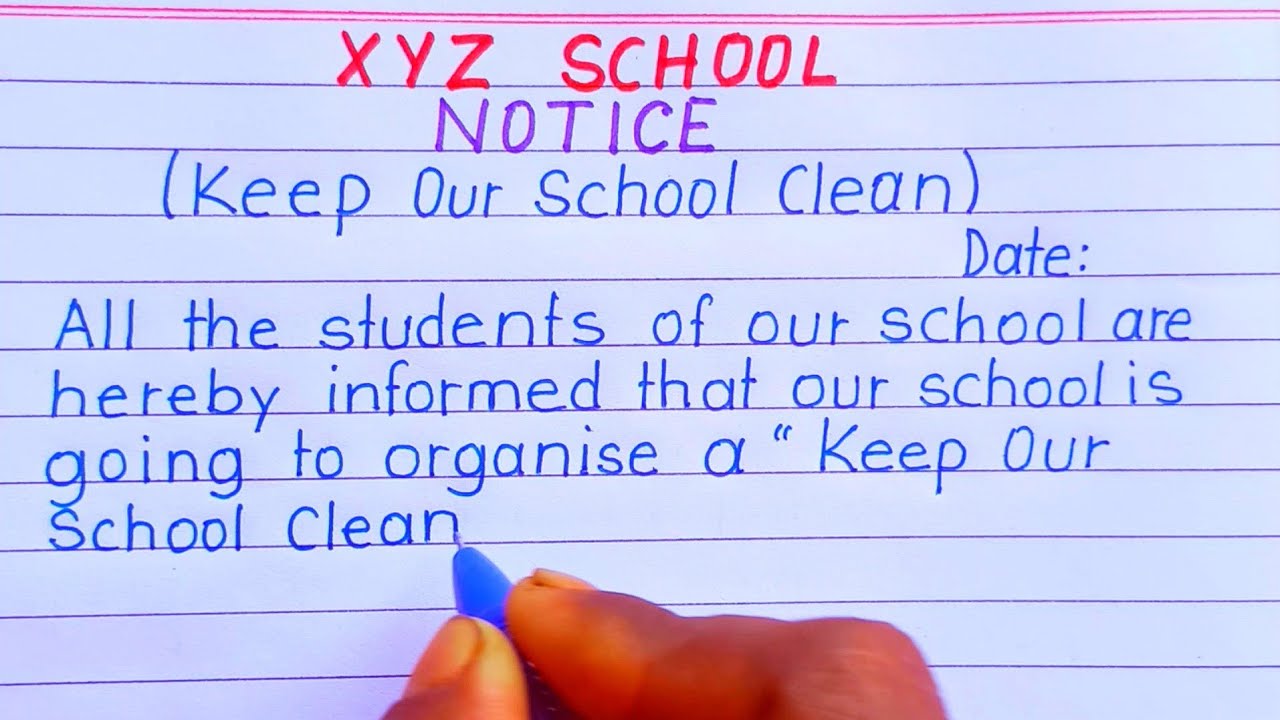 XYZ SCHOOL
NOTICE
(Keep Our School Clean)
Date:
All the students of our school are
hereby informed that our school is
going to organise a "Keep Our
School Clean